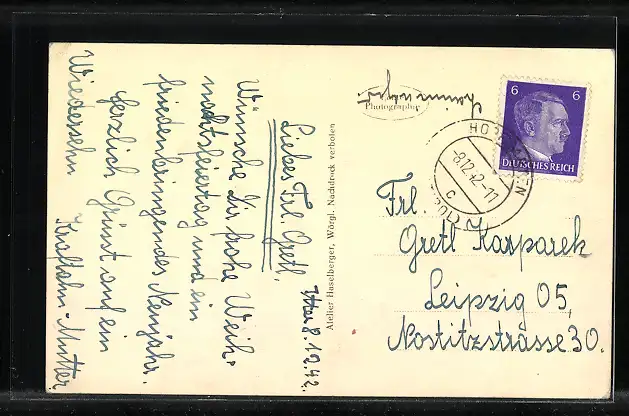 Itter 8.12.42.
Liebes Frl. Gretl,
Wünsche Dir frohe Weih-
nachtsfeiertag und ein
friedenbringendes Neujahr.
Herzlich Grüsst auf ein
Wiedersehn
Mutter
Atelier Haselberger, Wörgl. Nachdruck verboten
Photographie
6 6
DEUTSCHES REICH
HOPFGARTEN
-8.12.42-11
c
(TIROL)
Frl.
Gretl Kasparek
Leipzig O5,
Nostitzstrasse 30.